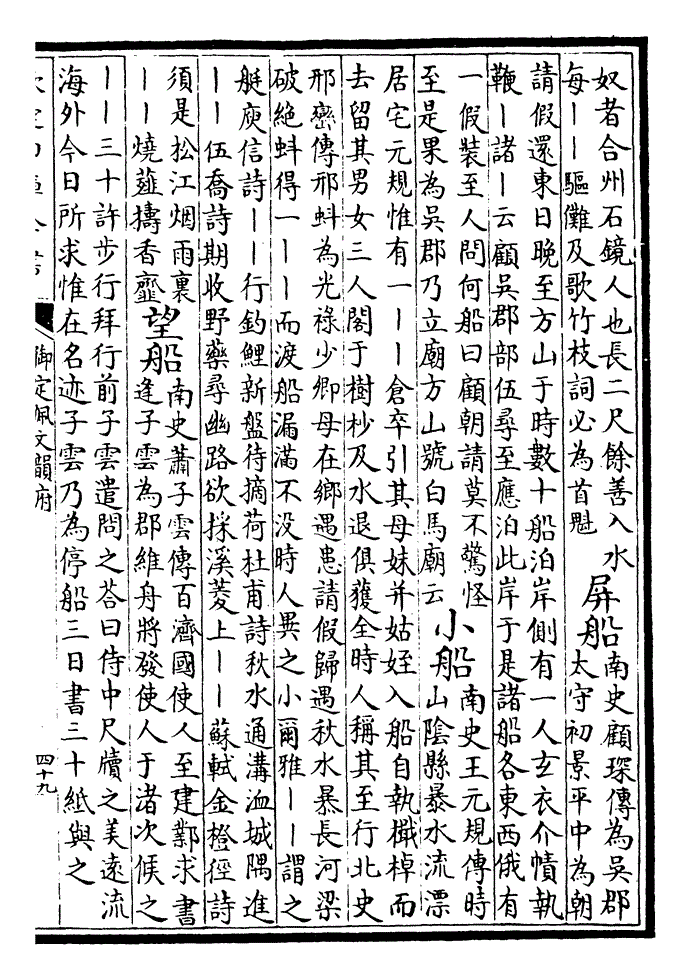 奴者合州石鏡人也長二尺餘善入水
每——驅儺及歌竹枝詞必為首魁
屏船
南史顧琛傳為吳郡
太守初景平中為朝
請假還東日晚至方山于時數十船泊岸側有一人玄衣介幘執
鞭—諸—云顧吳郡部伍尋至應泊此岸于是諸船各東西俄有
一假裝至人問何船曰顧朝請莫不驚怪
至是果為吳郡乃立廟方山號白馬廟云
小船
南史王元規傳時
山陰縣暴水流漂
居宅元規惟有一——倉卒引其母妹并姑姪入船自執檝棹而
去留其男女三人閣于樹杪及水退俱獲全時人稱其至行北史
邢巒傳邢蚪為光祿少卿母在鄉遇患請假歸遇秋水暴長河梁
破絕蚪得一——而渡船漏滿不没時人異之小爾雅——謂之
艇庾信詩——行釣鯉新盤待摘荷杜甫詩秋水通溝洫城隅進
——伍喬詩期收野藥尋幽路欲採溪菱上——蘇軾金橙徑詩
須是松江烟雨裏
——燒薤擣香虀
望船
南史蕭子雲傳百濟國使人至建鄴求書
逢子雲為郡維舟將發使人于渚次候之
——三十許步行拜行前子雲遣問之荅曰侍中尺牘之美遠流
海外今日所求惟在名迹子雲乃為停船三日書三十紙與之
御定佩文韻府
四十九